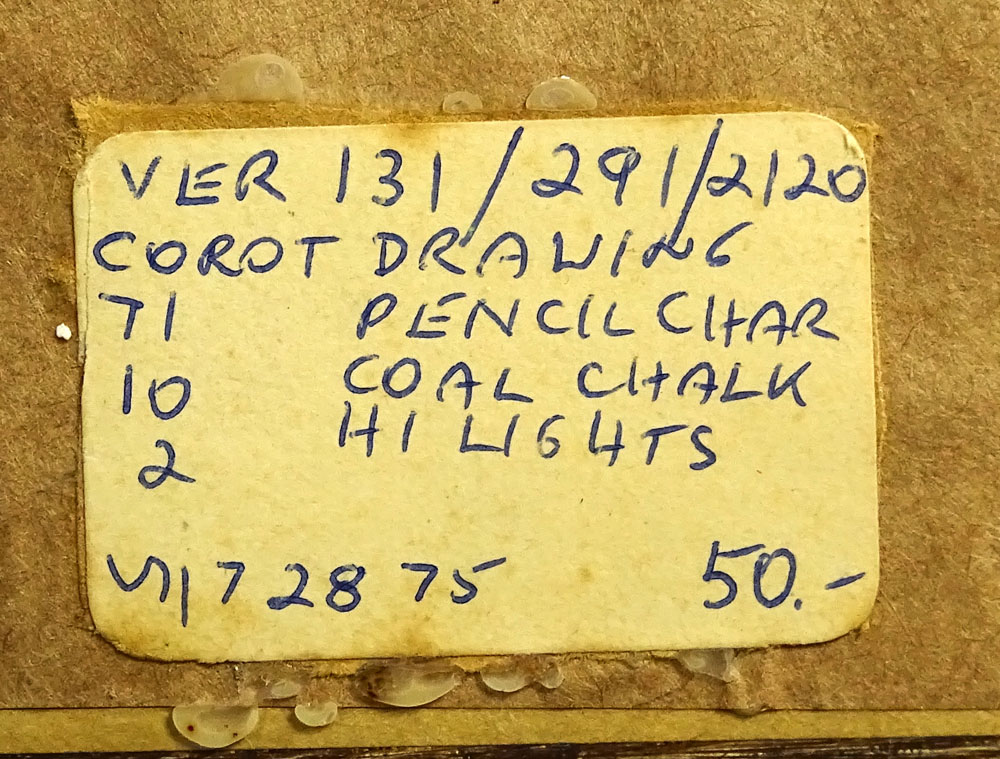 VER 131/291/2120
COROT DRAWING
71 PENCIL CHAR
10 COAL CHALK
HI LIGHTS
2
72875 50.-